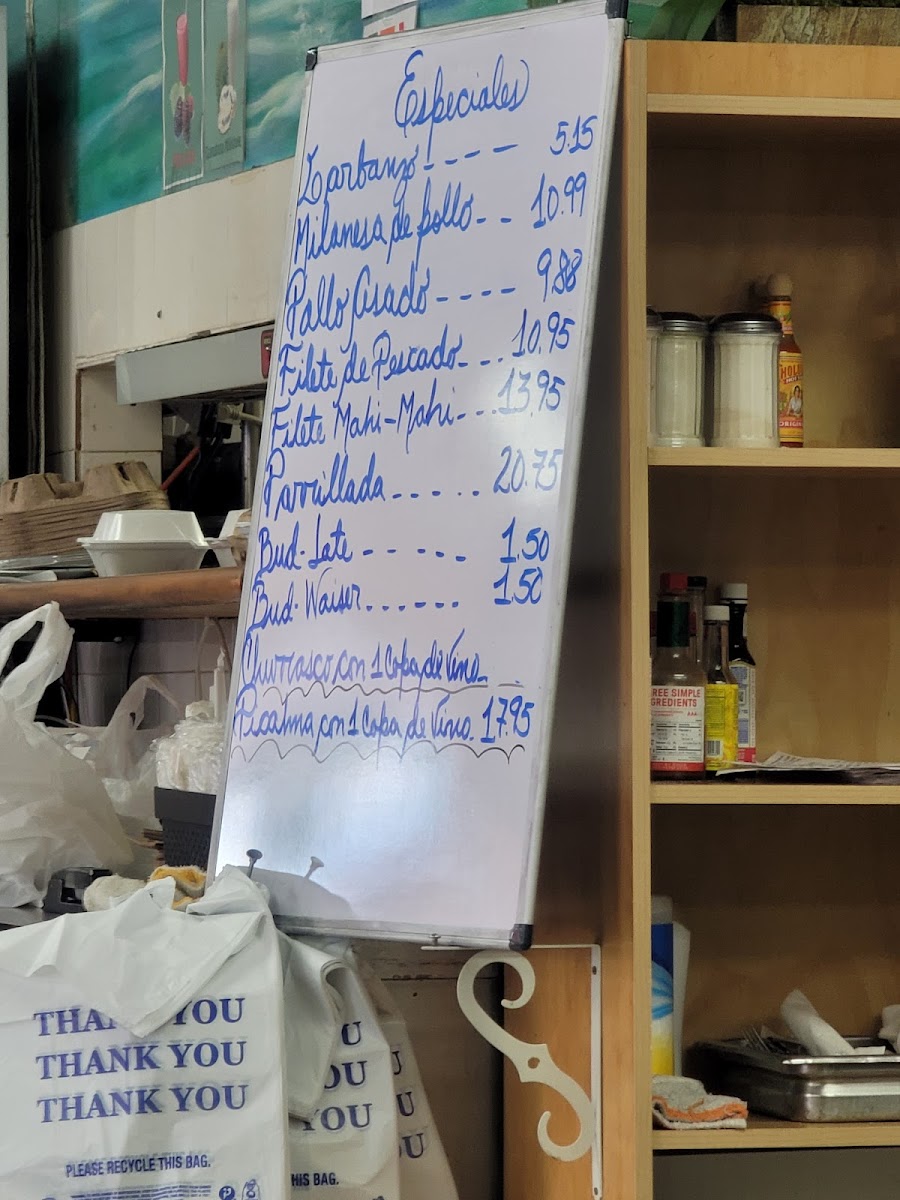 Especiales
Garbanzo ---- 5.15
Milanesa de pollo -- 10.99
Pollo Asado ---- 9.88
Filete de Pescado ... 10.95
Filete Mahi-Mahi ... 13.95
Parrillada ..... 20.75
Bud-Late ----- 1.50
Bud-Waiser ...... 1.50
Churrasco con 1 Copa de Vino
Picalma con 1 Copa de Vino. 17.95
CHOLU
ORIGIN
REE SIMPLE
GREDIENTS
THANK YOU
THANK YOU
THANK YOU
PLEASE RECYCLE THIS BAG.
U
OU
YOU
HIS BAG.
U
U
OU